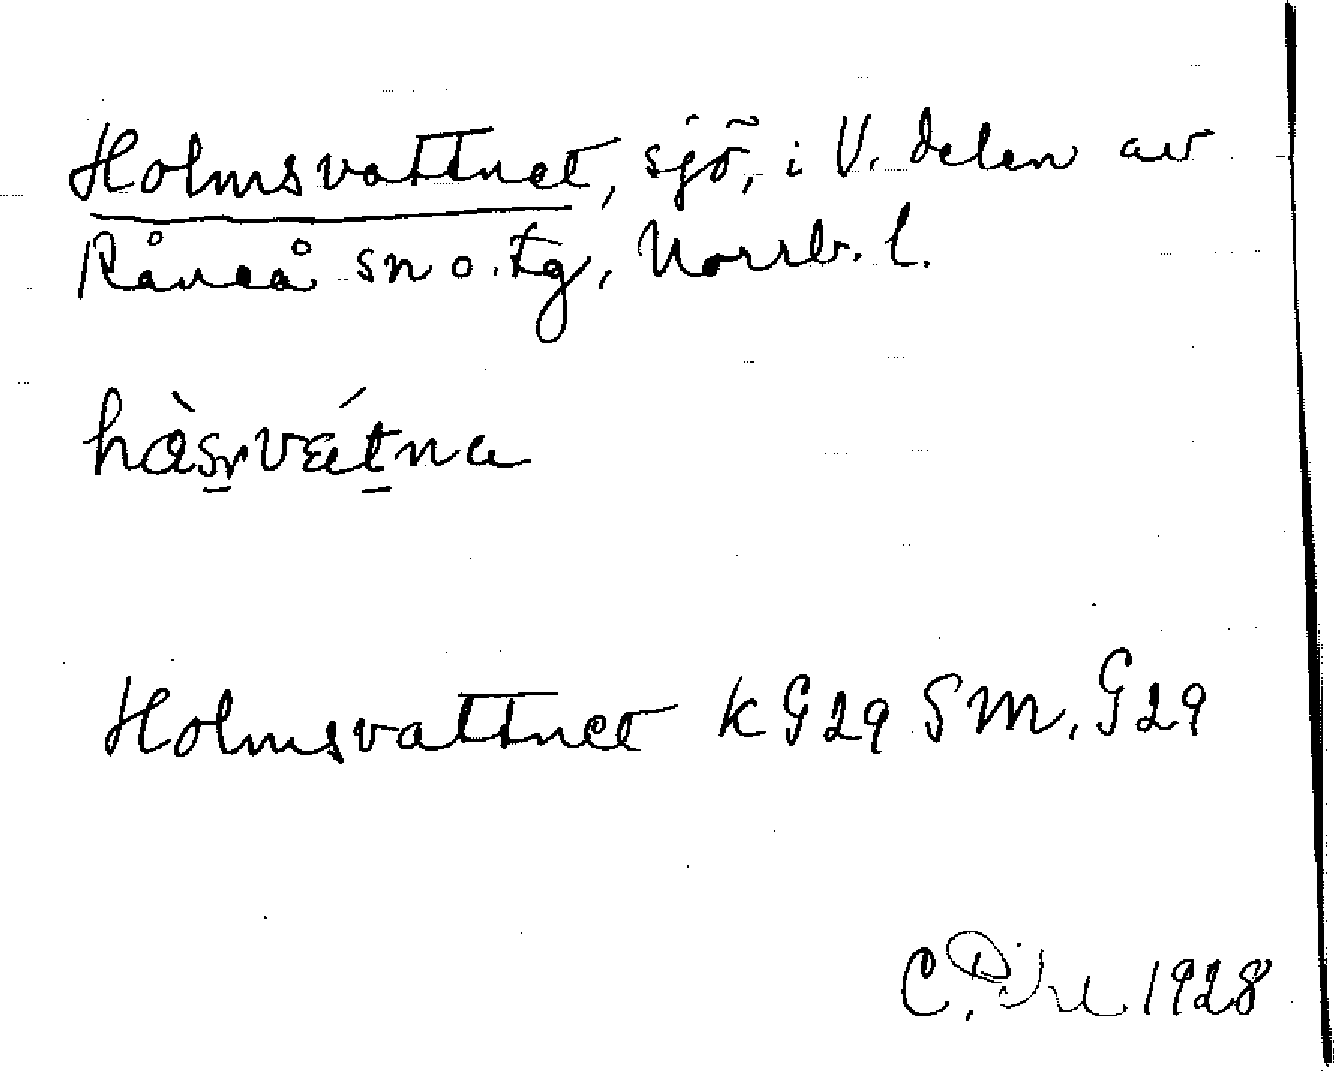 Holmsvattnet, sjö, i V. delen av
Råneå sn o. tg, Norrb. l.
hàsvátna
Holmsvattnet K G29 SM. G29
C. 1928